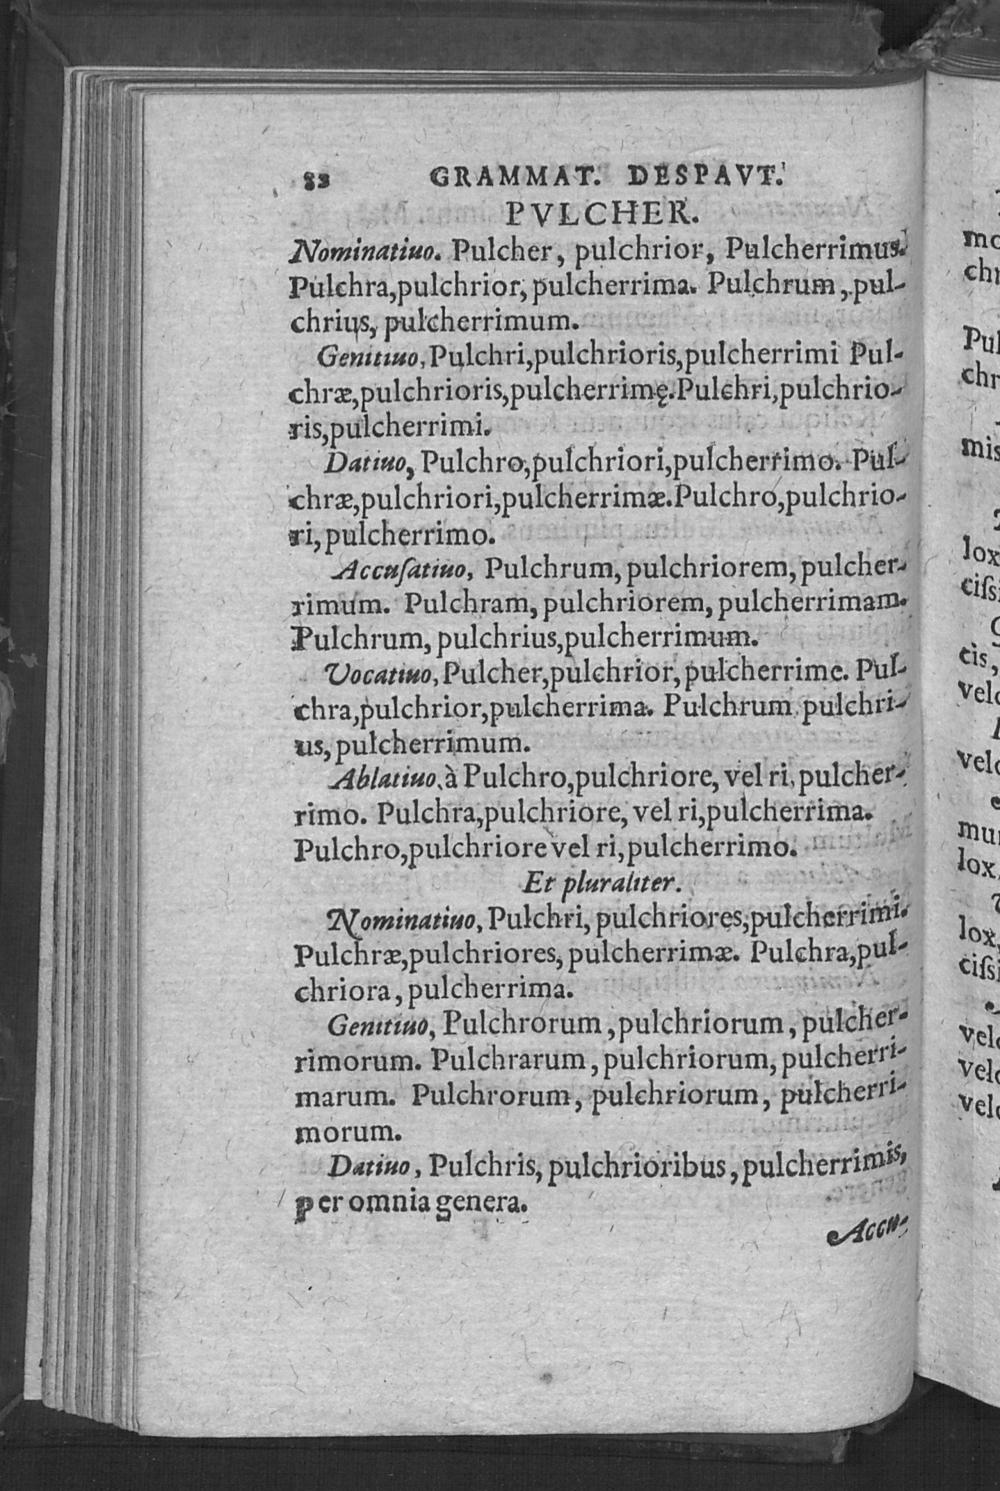 82 GRAMMAT. DESPAVT.
PVLCHER.
Nominatiuo. Pulcher, pulchrior, Pulcherrimus.
Pulchra,pulchrior, pulcherrima. Pulchrum, pul-
chrius, pulcherrimum.
Genitiuo, Pulchri,pulchrioris,pulcherrimi Pul-
chræ,pulchrioris,pulcherrimę.Pulchri,pulchrio-
ris,pulcherrimi.
Datiuo, Pulchro,pulchriori,pulcherrimo. Pul-
chræ,pulchriori,pulcherrimæ.Pulchro,pulchrio-
ri,pulcherrimo.
Accuſatiuo, Pulchrum, pulchriorem, pulcher-
rimum. Pulchram, pulchriorem, pulcherrimam.
Pulchrum, pulchrius,pulcherrimum.
Vocatiuo, Pulcher,pulchrior, pulcherrime. Pul-
chra,pulchrior,pulcherrima. Pulchrum pulchri-
us, pulcherrimum.
Ablatiuo, à Pulchro,pulchriore, vel ri, pulcher-
rimo. Pulchra,pulchriore, vel ri,pulcherrima.
Pulchro,pulchriore vel ri,pulcherrimo.
Et pluraliter.
Nominatiuo, Pulchri, pulchriores,pulcherrimi.
Pulchræ,pulchriores, pulcherrimæ. Pulchra,pul-
chriora, pulcherrima.
Genitiuo, Pulchrorum, pulchriorum, pulcher-
rimorum. Pulchrarum, pulchriorum, pulcherri-
marum. Pulchrorum, pulchriorum, pulcherri-
morum.
Datiuo, Pulchris, pulchrioribus, pulcherrimis,
per omnia genera.
Accu-